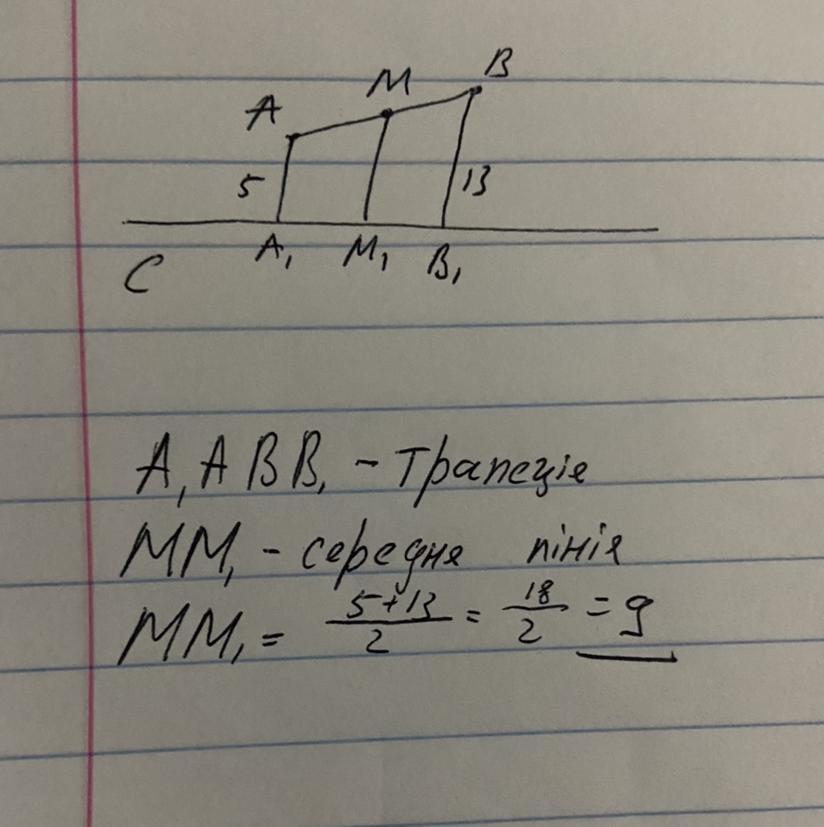 B
M
A
5
13
A₁ M₁ B₁
C
A₁ABB₁ - трапеція
MM₁ - середня лінія
MM₁ = (5+13)/2 = 18/2 = 9